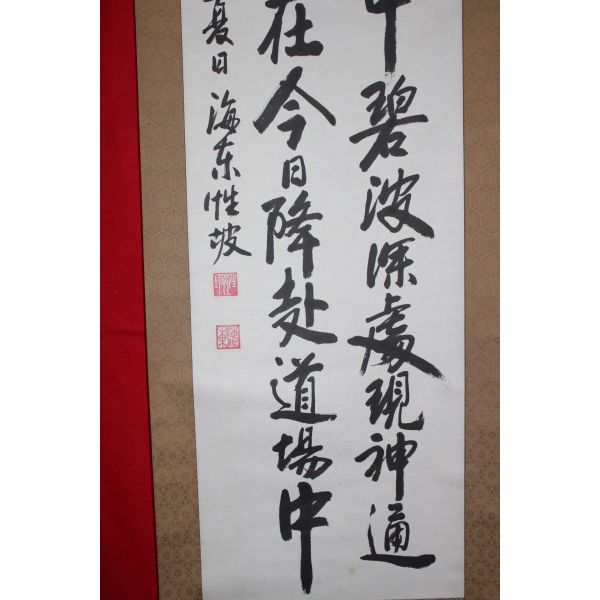 中碧波深處現神通
在今日降赴道場中
夏日 海東性坡